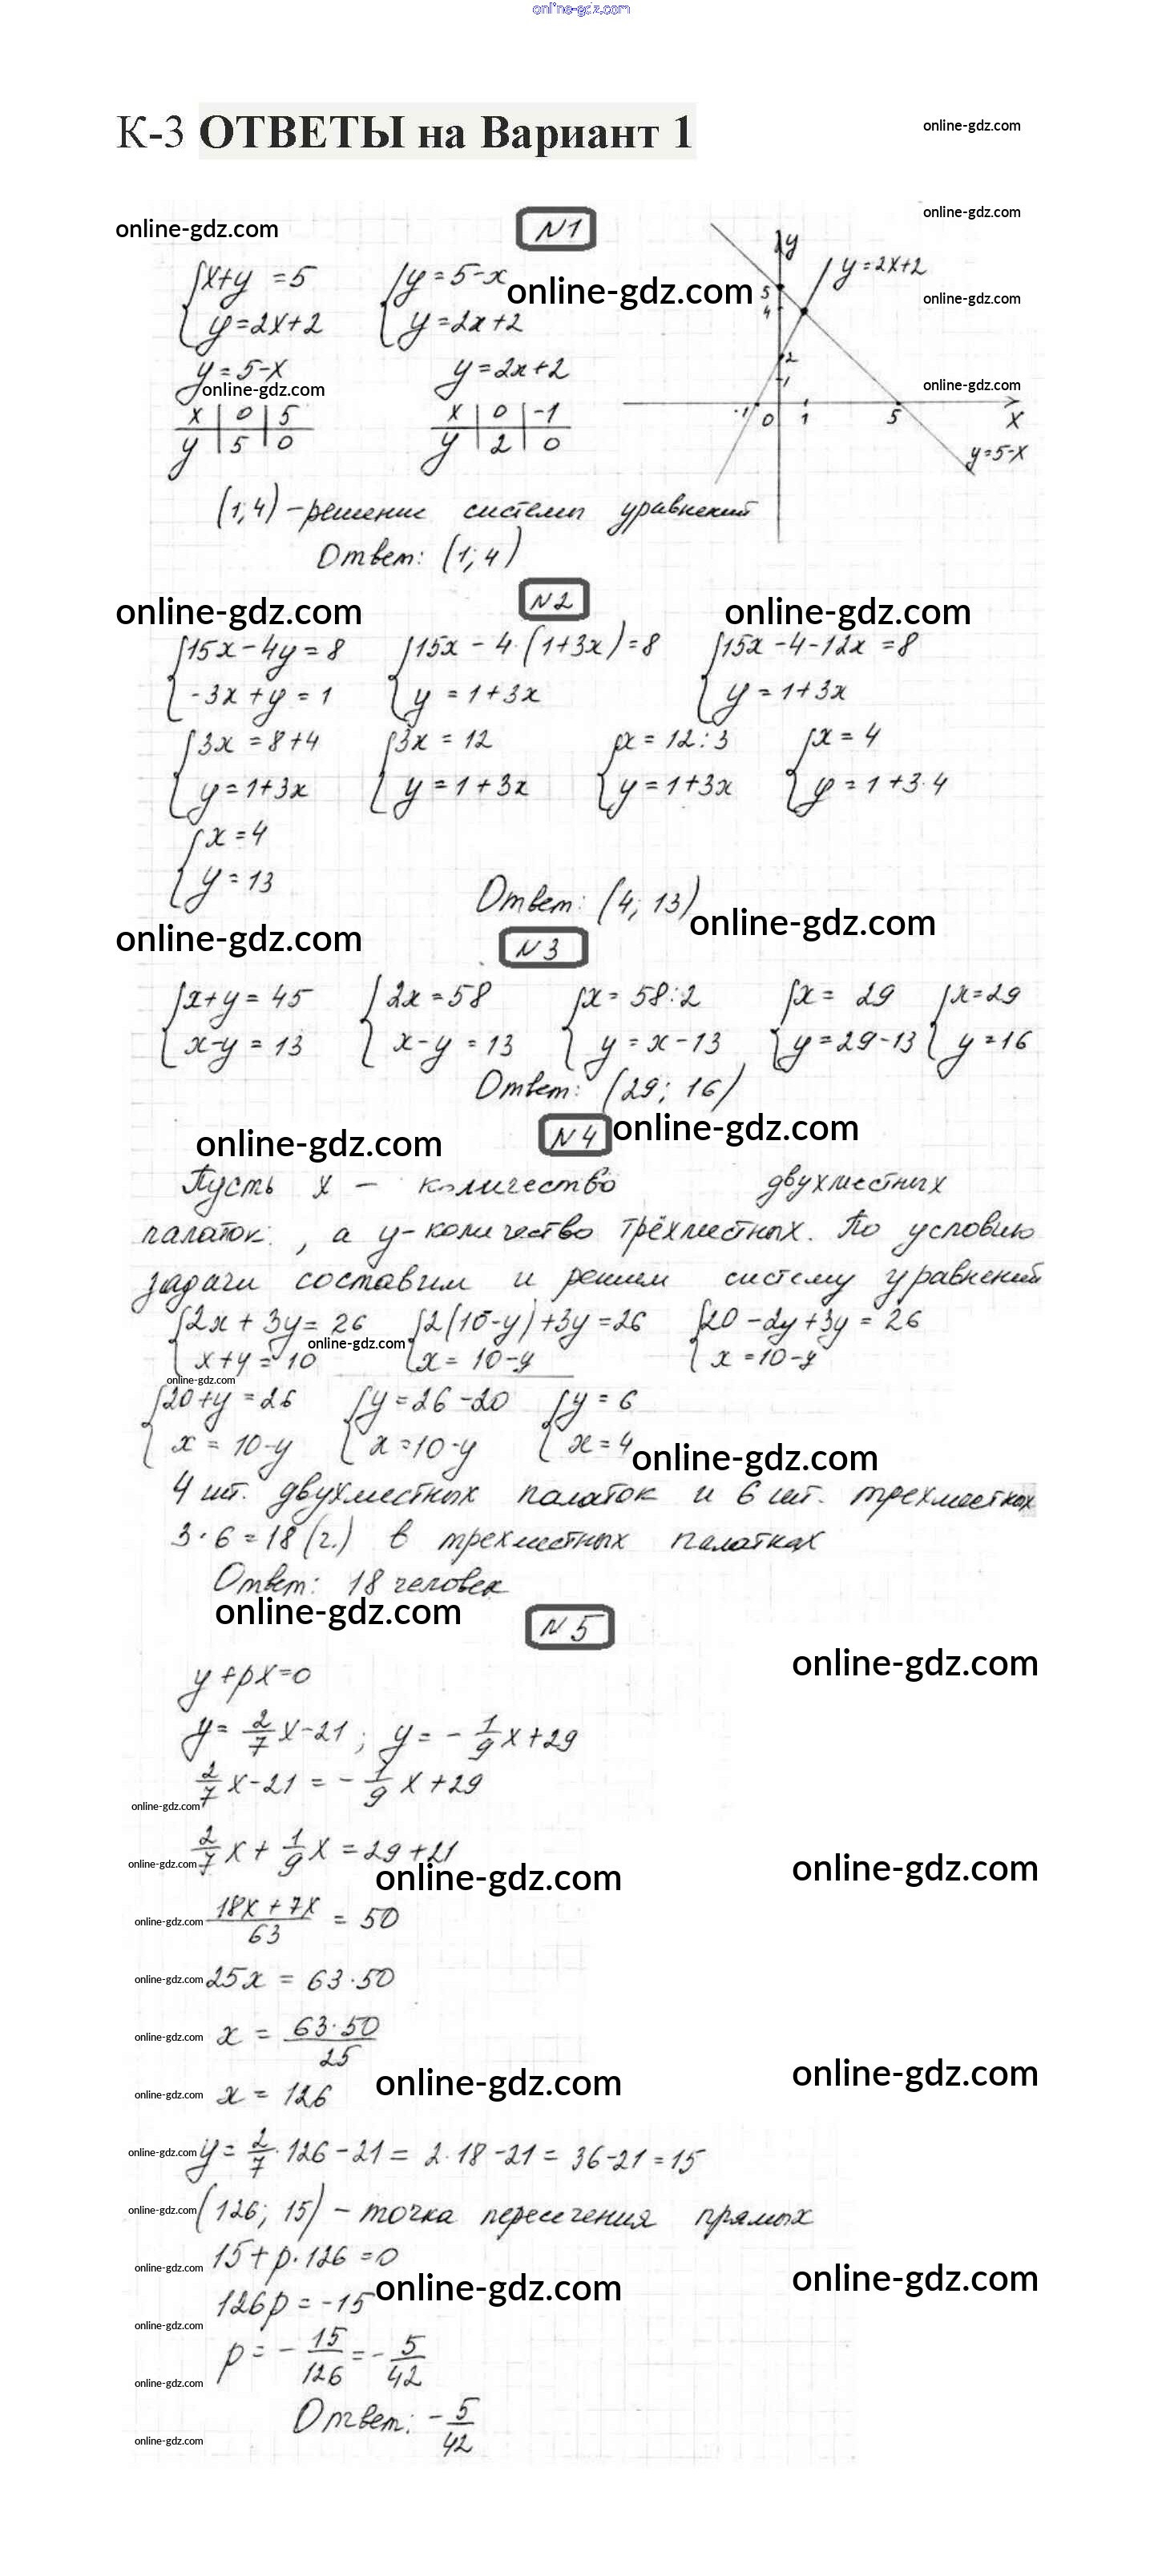 online-gdz.com
К-3 ОТВЕТЫ на Вариант 1
online-gdz.com
online-gdz.com
online-gdz.com
N1
{x+y = 5 {y = 5-x
{y=2x+2 {y=2x+2
online-gdz.com
online-gdz.com
y=5-x y=2x+2
online-gdz.com
online-gdz.com
x | 0 | 5 x | 0 | -1
y | 5 | 0 y | 2 | 0
y
y=2x+2
5
4
2
1
-1 0 1 5 x
y=5-x
(1;4) - решение системы уравнений
Ответ: (1; 4)
N2
online-gdz.com online-gdz.com
{15x-4y=8 {15x - 4·(1+3x)=8 {15x-4-12x=8
{-3x+y=1 {y=1+3x {y=1+3x
{3x=8+4 {3x=12 {x=12:3 {x=4
{y=1+3x {y=1+3x {y=1+3x {y=1+3·4
{x=4
{y=13
Ответ: (4; 13)
online-gdz.com online-gdz.com
N3
{x+y=45 {2x=58 {x=58:2 {x=29 {x=29
{x-y=13 {x-y=13 {y=x-13 {y=29-13 {y=16
Ответ: (29; 16)
N4
online-gdz.com online-gdz.com
Пусть x - количество двухместных
палаток, а y-количество трёхместных. По условию
задачи составим и решим систему уравнений
{2x+3y=26 {2(10-y)+3y=26 {20-2y+3y=26
online-gdz.com
{x+y=10 {x=10-y {x=10-y
online-gdz.com
{20+y=26 {y=26-20 {y=6
{x=10-y {x=10-y {x=4
online-gdz.com
4 шт. двухместных палаток и 6 шт. трехместных
3·6=18(ч.) в трехместных палатках
Ответ: 18 человек
online-gdz.com
N5
online-gdz.com
y+px=0
y=2/7x-21; y=-1/9x+29
2/7x-21=-1/9x+29
online-gdz.com
2/7x+1/9x=29+21
online-gdz.com
online-gdz.com online-gdz.com
(18x+7x)/63=50
online-gdz.com
25x=63·50
online-gdz.com
x=(63·50)/25
online-gdz.com
x=126
online-gdz.com
online-gdz.com online-gdz.com
y=2/7·126-21=2·18-21=36-21=15
online-gdz.com
(126; 15) - точка пересечения прямых
online-gdz.com
15+p·126=0
online-gdz.com
126p=-15
online-gdz.com online-gdz.com
online-gdz.com
p=-15/126=-5/42
online-gdz.com
Ответ: -5/42
online-gdz.com